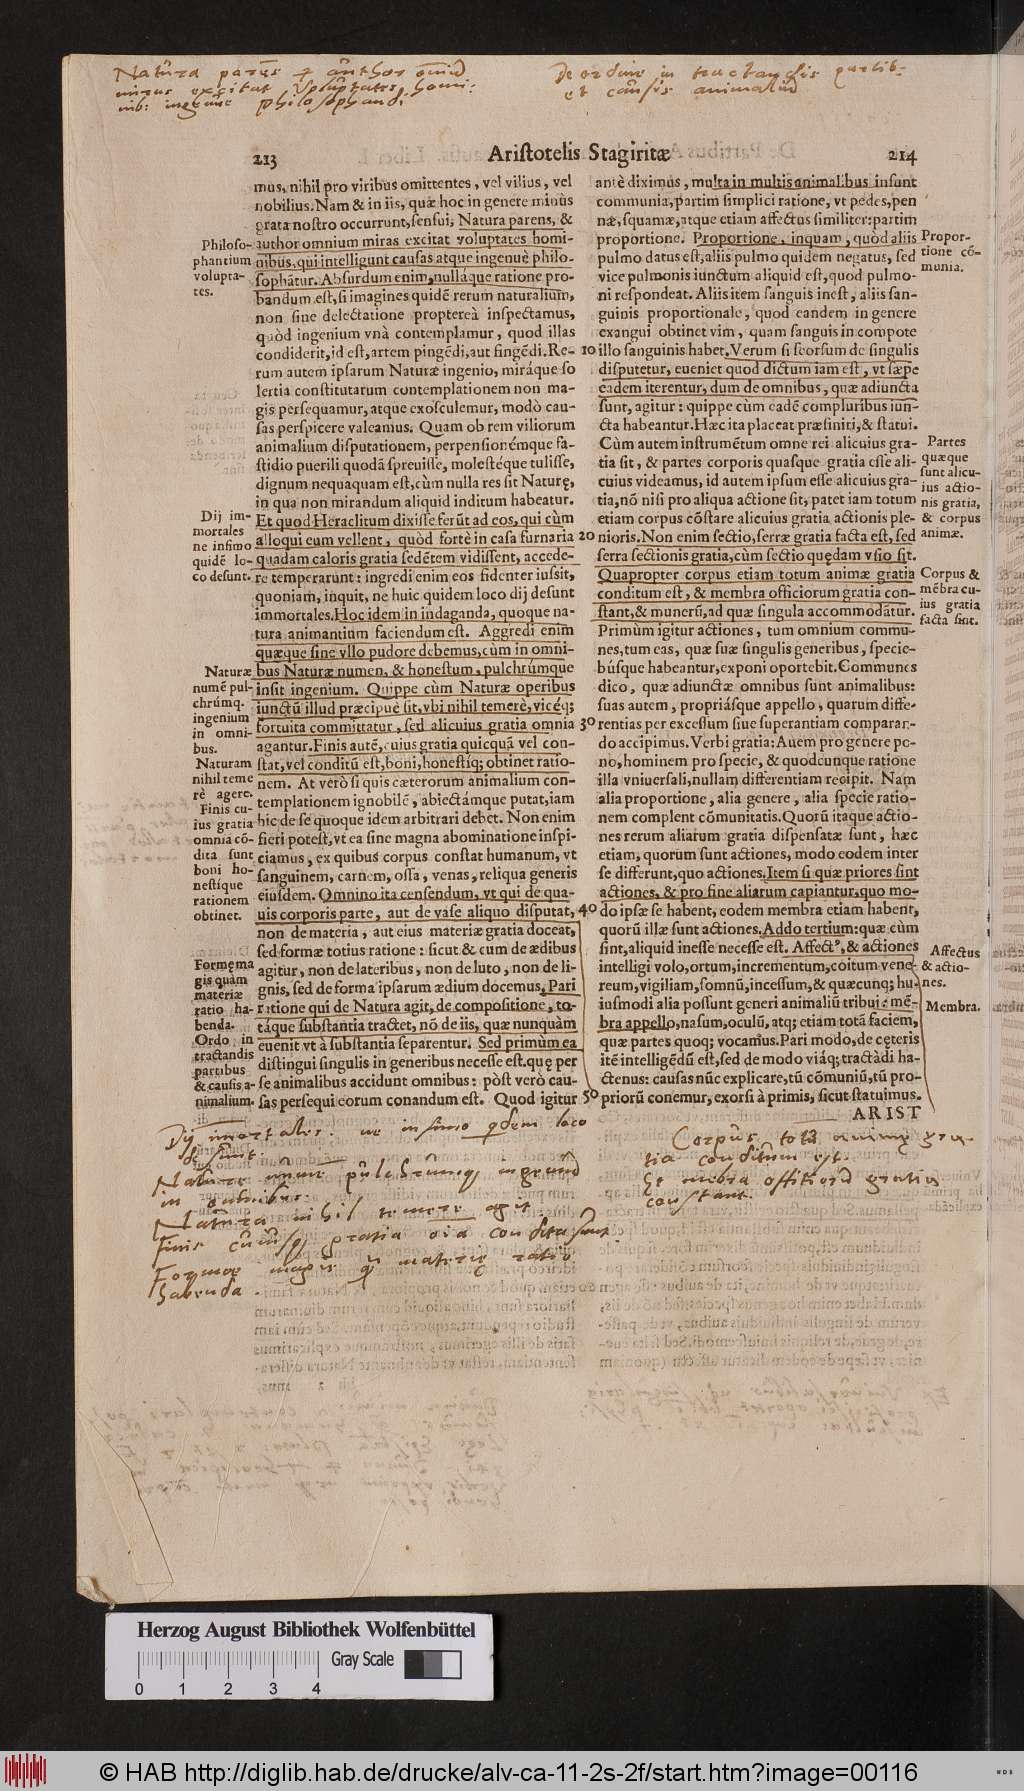 Natura parēs & author omniū
miras excitat voluptates homi-
nib: ingenue philosophandi
De ordine in tractandis partib:
et causis animaliū
213
Aristotelis Stagiritæ
214
mus, nihil pro viribus omittentes, vel vilius, vel
nobilius. Nam & in iis, quæ hoc in genere minùs
grata nostro occurrunt, sensui, Natura parens, &
author omnium miras excitat voluptates homi-
nibus, qui intelligunt causas atque ingenuè philo-
sophātur. Absurdum enim, nulláque ratione pro-
bandum est, si imagines quidē rerum naturalium,
non sine delectatione proptereà inspectamus,
quòd ingenium vnà contemplamur, quod illas
condiderit, id est, artem pingēdi, aut fingēdi. Re-
rum autem ipsarum Naturæ ingenio, miráque so
lertia constitutarum contemplationem non ma-
gis persequamur, atque exosculemur, modò cau-
sas perspicere valeamus. Quam ob rem viliorum
animalium disputationem, perpensionémque fa-
stidio puerili quodā spreuisse, molestéque tulisse,
dignum nequaquam est, cùm nulla res sit Naturę,
in qua non mirandum aliquid inditum habeatur.
Et quod Heraclitum dixisse ferūt ad eos, qui cùm
alloqui eum vellent, quòd fortè in casa furnaria
quadam caloris gratia sedētem vidissent, accede-
re temperarunt: ingredi enim eos fidenter iussit,
quoniam, inquit, ne huic quidem loco dij desunt
immortales. Hoc idem in indaganda, quoque na-
tura animantium faciendum est. Aggredi enim
quæque sine vllo pudore debemus, cùm in omni-
bus Naturæ numen, & honestum, pulchrúmque
insit ingenium. Quippe cùm Naturæ operibus
iunctū illud præcipuè sit, vbi nihil temerè, vicéq;
fortuita committatur, sed alicuius gratia omnia
agantur. Finis autē, cuius gratia quicquā vel con-
stat, vel conditū est, boni, honestíq; obtinet ratio-
nem. At verò si quis cæterorum animalium con-
templationem ignobilē, abiectámque putat, iam
hic de se quoque idem arbitrari debet. Non enim
fieri potest, vt ea sine magna abominatione inspi-
ciamus, ex quibus corpus constat humanum, vt
sanguinem, carnem, ossa, venas, reliqua generis
eiusdem. Omnino ita censendum, vt qui de qua-
uis corporis parte, aut de vase aliquo disputat,
non de materia, aut eius materiæ gratia doceat,
sed formæ totius ratione: sicut & cum de ædibus
agitur, non de lateribus, non de luto, non de li-
gnis, sed de forma ipsarum ædium docemus. Pari
ratione qui de Natura agit, de compositione, to-
táque substantia tractet, nō de iis, quæ nunquàm
euenit vt à substantia separentur. Sed primùm ea
distingui singulis in generibus necesse est, quę per
se animalibus accidunt omnibus: pòst verò cau-
sas persequi eorum conandum est. Quod igitur
Philoso-
phantium
volupta-
tes.
Dij im-
mortales
ne infimo
quidē lo-
co desunt.
Naturæ
numē pul-
chrúmq.
ingenium
in omni-
bus.
Naturam
nihil teme
rè agere.
Finis cu-
ius gratia
omnia cō-
dita sunt
boni ho-
nestíque
rationem
obtinet.
Formę ma
gis quàm
materiæ
ratio ha-
benda.
Ordo in
tractandis
partibus
& causis a-
nimalium.
10
20
30
40
50
antè diximus, multa in multis animalibus insunt
communia, partim simplici ratione, vt pedes, pen
næ, squamæ, atque etiam affectus similiter: partim
proportione. Proportione, inquam, quòd aliis
pulmo datus est, aliis pulmo quidem negatus, sed
vice pulmonis iunctum aliquid est, quod pulmo-
ni respondeat. Aliis item sanguis inest, aliis san-
guinis proportionale, quod eandem in genere
exangui obtinet vim, quam sanguis in compote
illo sanguinis habet. Verum si seorsum de singulis
disputetur, eueniet quod dictum iam est, vt sæpe
eadem iterentur, dum de omnibus, quæ adiuncta
sunt, agitur: quippe cùm eadē compluribus iun-
cta habeantur. Hæc ita placeat præfiniri, & statui.
Cùm autem instrumētum omne rei alicuius gra-
tia sit, & partes corporis quasque gratia esse ali-
cuius videamus, id autem ipsum esse alicuius gra-
tia, nō nisi pro aliqua actione sit, patet iam totum
etiam corpus cōstare alicuius gratia actionis ple-
nioris. Non enim sectio, serræ gratia facta est, sed
serra sectionis gratia, cùm sectio quędam vsio sit.
Quapropter corpus etiam totum animæ gratia
conditum est, & membra officiorum gratia con-
stant, & munerū, ad quæ singula accommodātur.
Primùm igitur actiones, tum omnium commu-
nes, tum eas, quæ suæ singulis generibus, specie-
búsque habeantur, exponi oportebit. Communes
dico, quæ adiunctæ omnibus sunt animalibus:
suas autem, propriásque appello, quarum diffe-
rentias per excessum siue superantiam comparan-
do accipimus. Verbi gratia: Auem pro genere po-
no, hominem pro specie, & quodcunque ratione
illa vniuersali, nullam differentiam recipit. Nam
alia proportione, alia genere, alia specie ratio-
nem complent cōmunitatis. Quorū itaque actio-
nes rerum aliarum gratia dispensatæ sunt, hæc
etiam, quorum sunt actiones, modo eodem inter
se differunt, quo actiones. Item si quæ priores sint
actiones, & pro fine aliarum capiantur, quo mo-
do ipsæ se habent, eodem membra etiam habent,
quorū illæ sunt actiones. Addo tertium: quæ cùm
sint, aliquid inesse necesse est. Affectꝰ, & actiones
intelligi volo, ortum, incrementum, coitum vene-
reum, vigiliam, somnū, incessum, & quæcunq; hu-
iusmodi alia possunt generi animaliū tribui: mē-
bra appello, nasum, oculū, atq; etiam totā faciem,
quæ partes quoq; vocamus. Pari modo, de cęteris
itē intelligēdū est, sed de modo viáq; tractādi ha-
ctenus: causas nūc explicare, tū cōmuniū, tū pro-
priorū conemur, exorsi à primis, sicut statuimus.
ARIST
Propor-
tione cō-
munia.
Partes
quæque
sunt alicu-
ius actio-
nis gratia,
& corpus
animæ.
Corpus &
mēbra cu-
ius gratia
facta sint.
Affectus
& actio-
nes.
Membra.
Dij immortales ne infimo qdem loco
desunt.
Naturæ numē pulchrumq; ingeniū
in omnibus.
Natura nihil temere aget
Finis cuiusq; gratia oīa condita sunt
Formæ magis q̄ materię ratio
habenda.
Corpus totū animę gra-
tia conditum est.
Et mēbra offitiorū gratia
constant.
Herzog August Bibliothek Wolfenbüttel
Gray Scale
0 1 2 3 4
© HAB http://diglib.hab.de/drucke/alv-ca-11-2s-2f/start.htm?image=00116